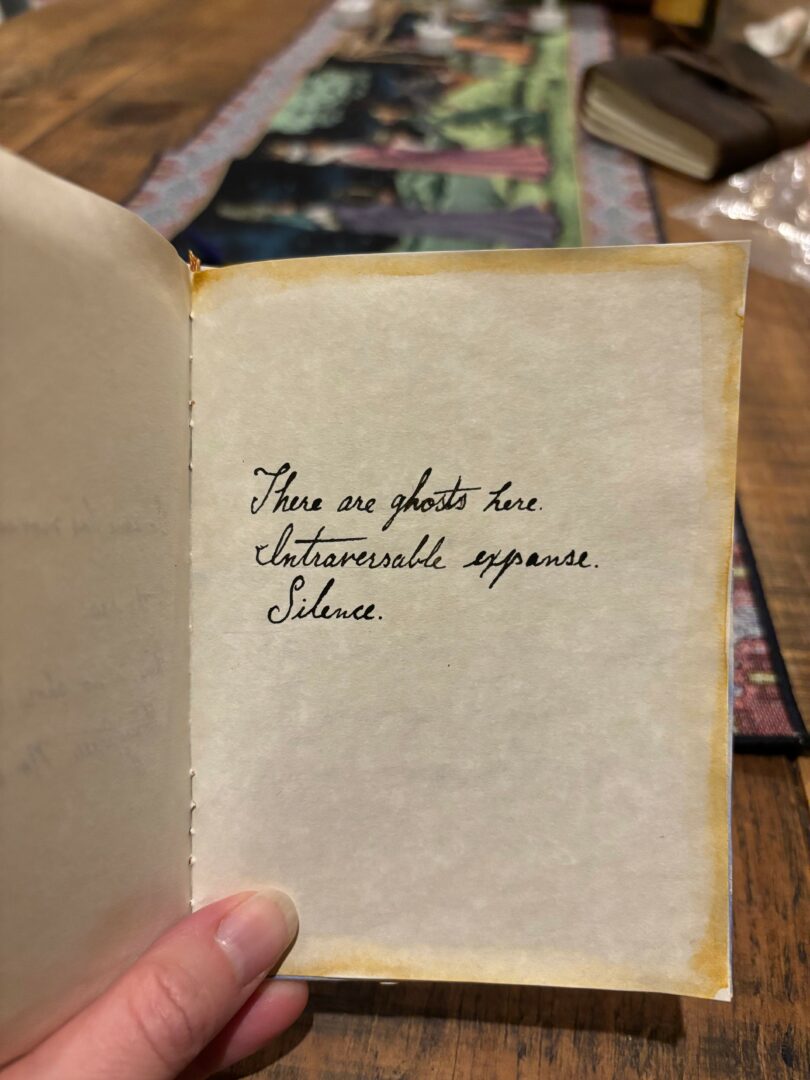 There are ghosts here.
Intraversable expanse.
Silence.